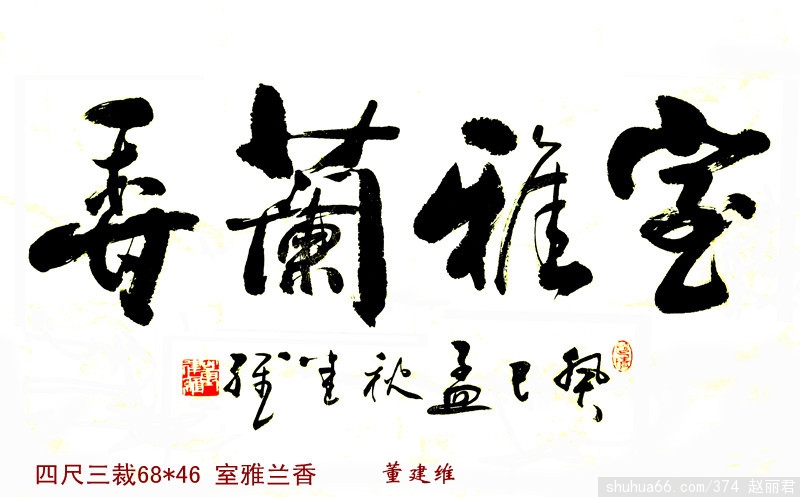 室雅蘭香
癸巳孟秋建維
四尺三裁68*46 室雅兰香 董建维
shuhua66.com/374 赵丽君